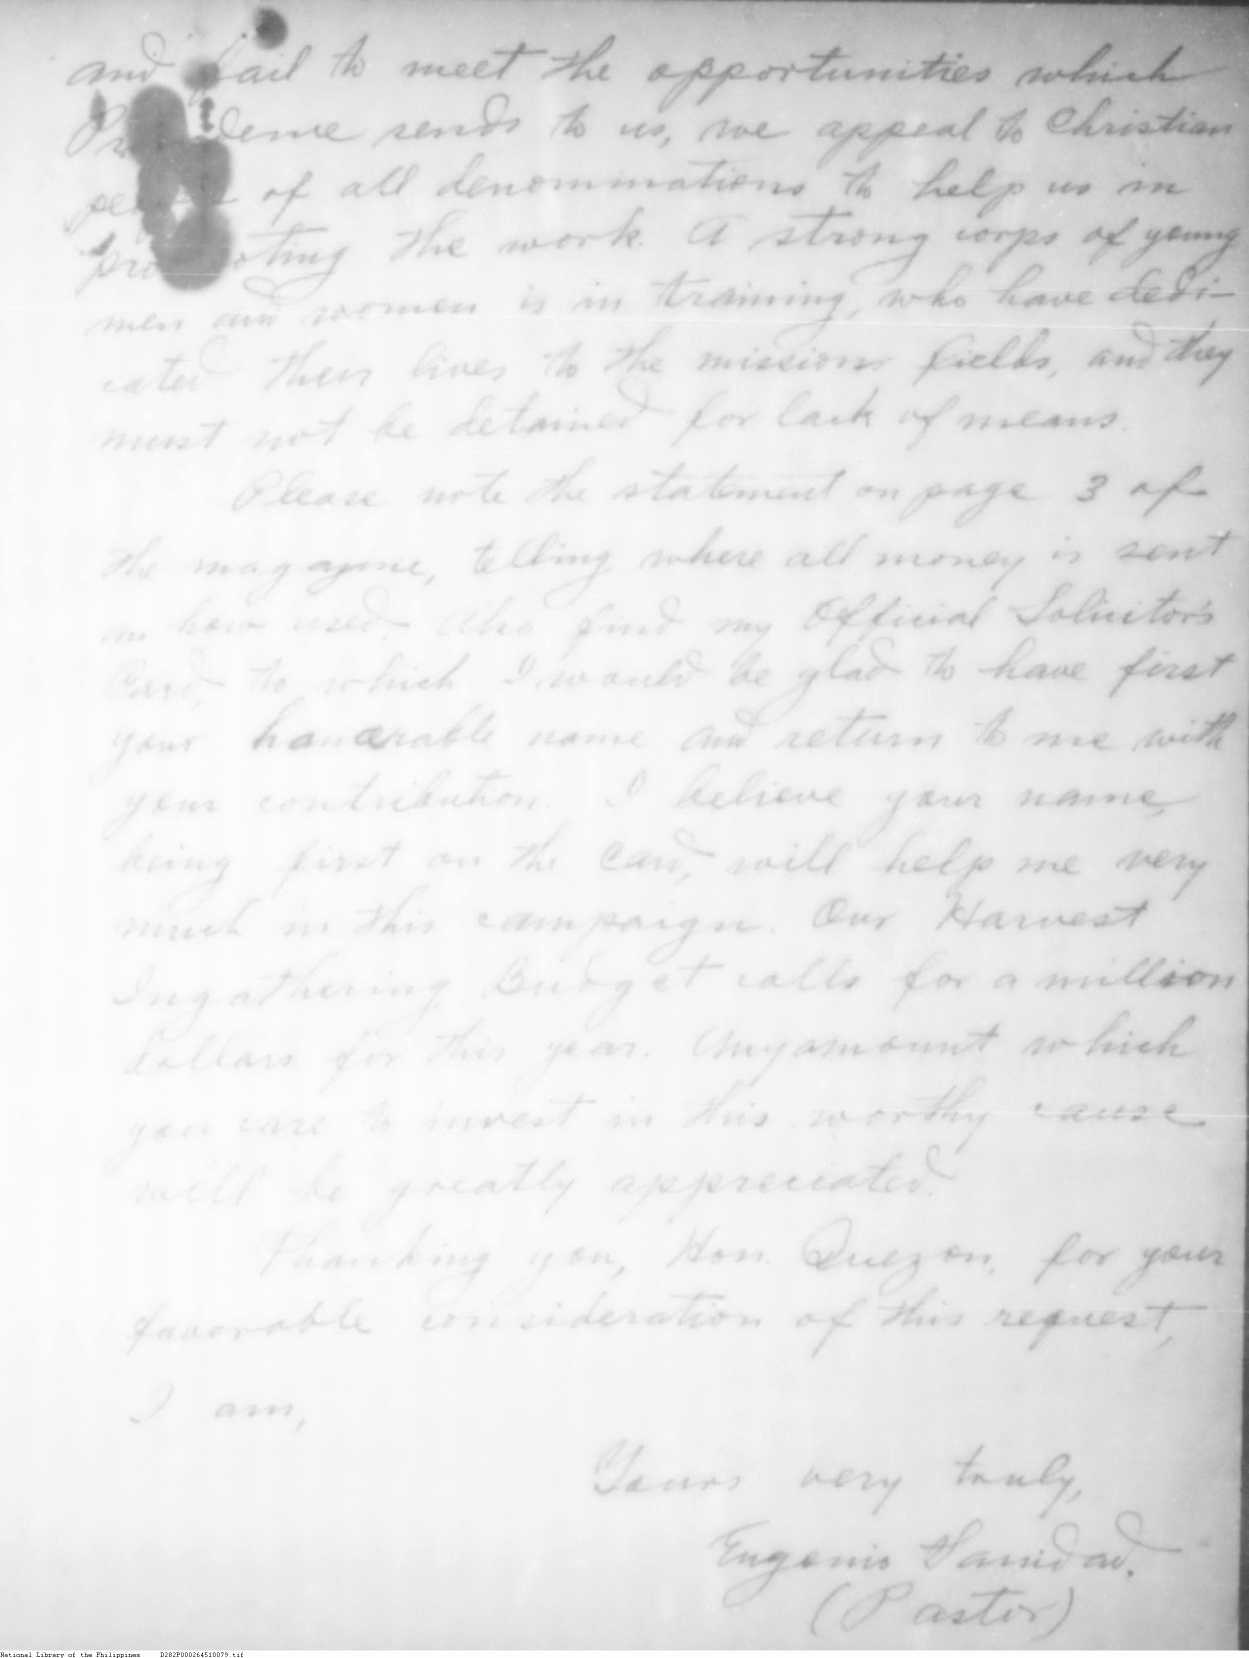 and fail to meet the opportunities which
Providence sends to us, we appeal to Christian
people of all denominations to help us in
promoting the work. A strong corps of young
men and women is in training, who have dedi-
cated their lives to the missions fields, and they
must not be detained for lack of means.
Please note the statement on page 3 of
the magazine, telling where all money is sent
an how used. Also find my Official Solicitor's
Card, to which I would be glad to have first
your honorable name and return to me with
your contribution. I believe your name,
being first on the Card, will help me very
much in this campaign. Our Harvest
Ingathering Budget calls for a million
dollars for this year. Any amount which
you care to invest in this worthy cause
will be greatly appreciated.
Thanking you, Hon. Quezon, for your
favorable consideration of this request,
I am,
Yours very truly,
Eugenio
(Pastor)
National Library of the Philippines D282P000264510079.tif